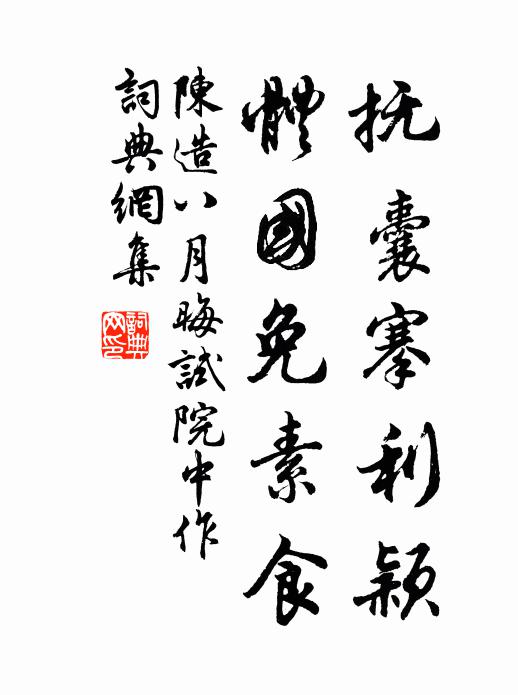 抚囊搴利颖
體國免素食
陳造八月晦試院中作
詞典網集
詞典網印